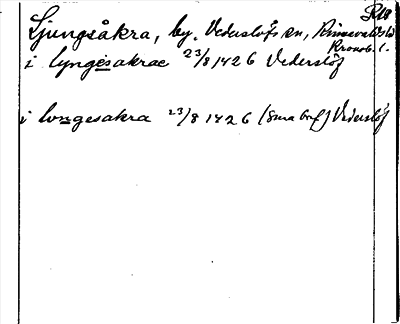 Ljungsåkra, by. Vederslöfs sn, Kinnevalds hd
Kronob. l.
i lyngesakrae 23/8 1426 Vederslöf
i longesakra 23/8 1426 (sma brf) Vederslöf